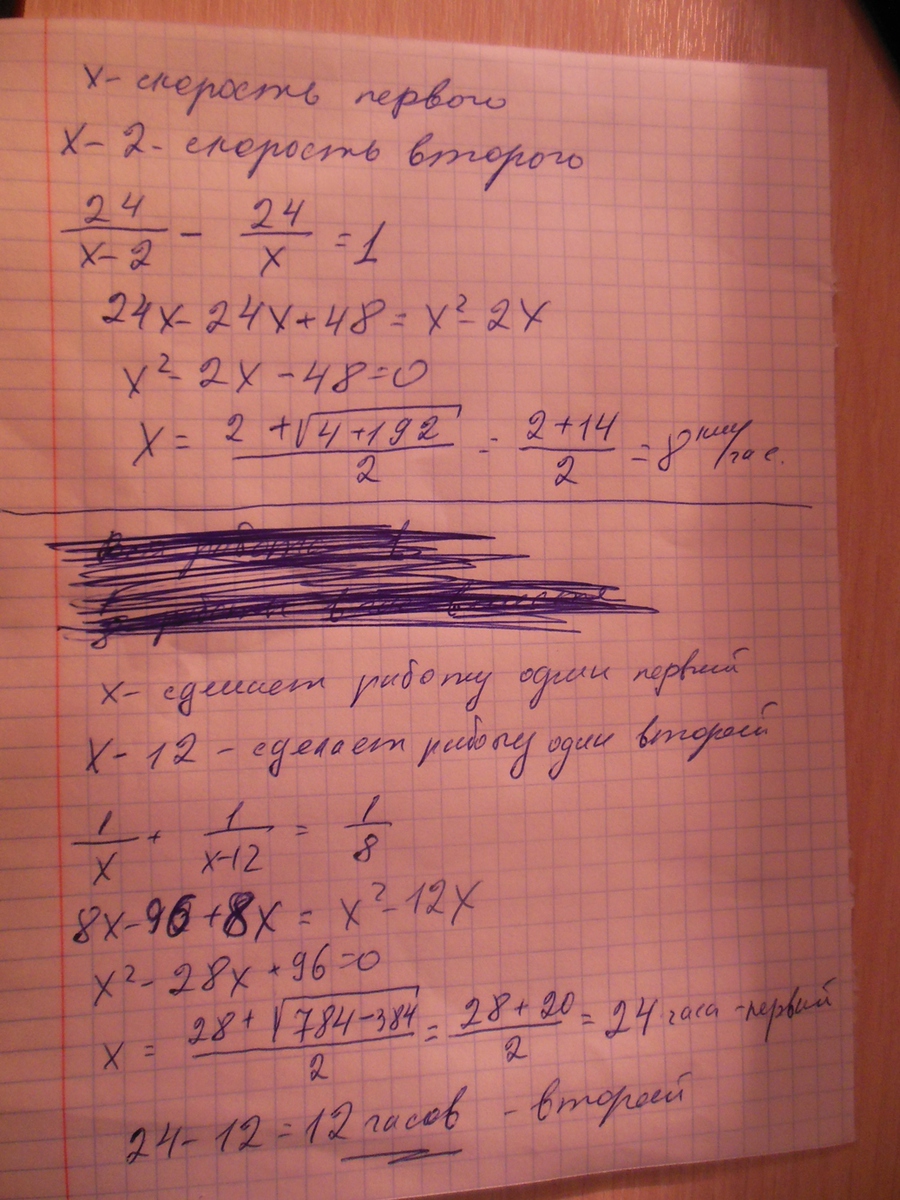 x - скорость первого
x - 2 - скорость второго
24/(x-2) - 24/x = 1
24x - 24x + 48 = x² - 2x
x² - 2x - 48 = 0
x = (2 + √(4 + 192))/2 = (2 + 14)/2 = 8 км/час.
x - сделает работу один первый
x - 12 - сделает работу один второй
1/x + 1/(x-12) = 1/8
8x - 96 + 8x = x² - 12x
x² - 28x + 96 = 0
x = (28 + √(784 - 384))/2 = (28 + 20)/2 = 24 часа - первый
24 - 12 = 12 часов - второй